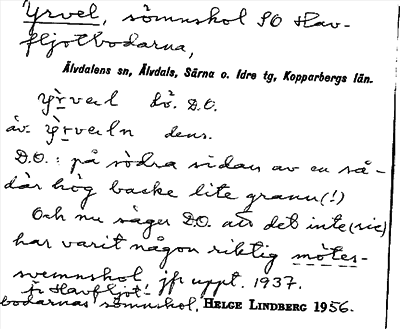 Yrvel, sömnskol SO Hav-
fljotbodarna,
Älvdalens sn, Älvdals, Särna o. Idre tg, Kopparbergs län.
Yrvel D.O.
äv. Yrveln dens.
D.O.: på södra sidan av en så-
där hög backe lite grann (!)
Och nu säger D.O. att det inte (sic)
har varit någon riktig mötes-
svemnskol jfr uppt. 1937.
fr Havfljot-
bodarnas sömnskol. HELGE LINDBERG 1956.